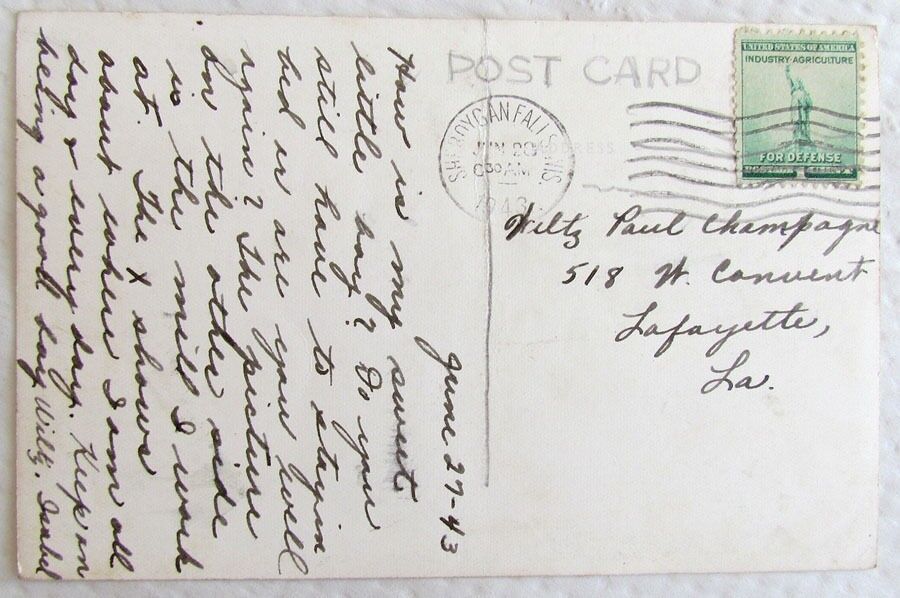 June 27-43
How is my sweet
little boy? Do you
still have to stay in
bed or are you well
again? The picture
on the other side
is the mill I work
at. The x shows
about where I am all
day & every day. Keep on
being a good boy Wiltz. Isabel
POST CARD
ADDRESS
SHEBOYGAN FALLS WIS.
JUN 28
8 30 AM
1943
UNITED STATES OF AMERICA
INDUSTRY-AGRICULTURE
FOR DEFENSE
POSTAGE 1
Wiltz Paul Champagne
518 W. Convent
Lafayette,
La.